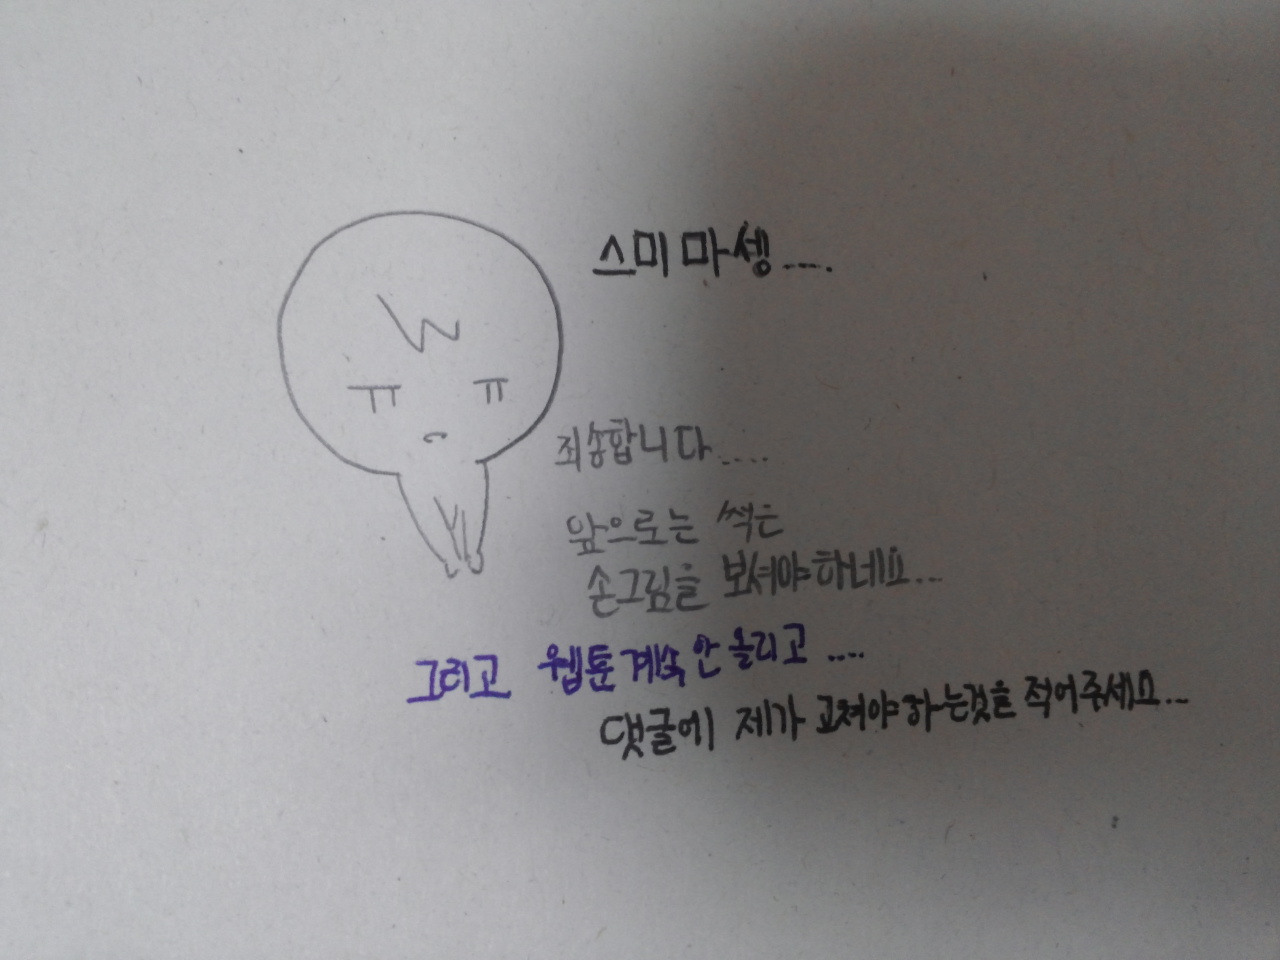 스미마셍....
죄송합니다....
앞으로는 썩은
손그림을 보셔야하네요...
그리고 웹툰계속 안 올리고 ....
댓글에 제가 고쳐야 하는것을 적어주세요...